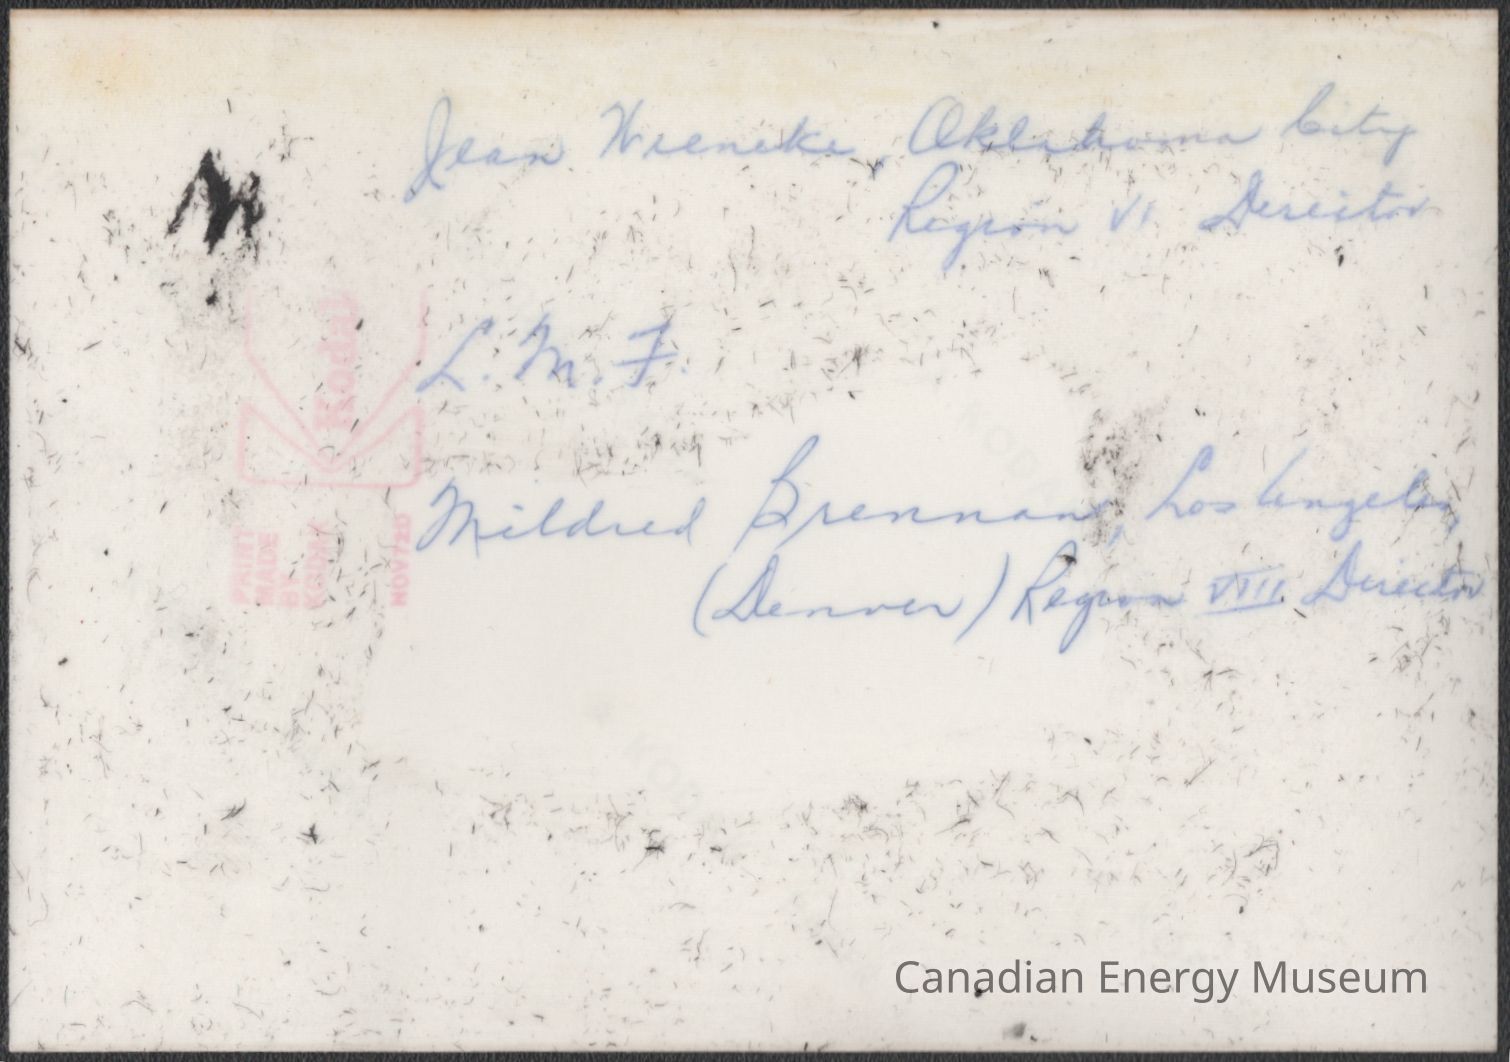 Jean Wieneke, Oklahoma City
Region VI Director
L. M. F.
Mildred Brennan, Los Angeles,
(Denver) Region VIII Director
Kodak
PRINT
MADE
BY
KODAK
NOV72D
Canadian Energy Museum